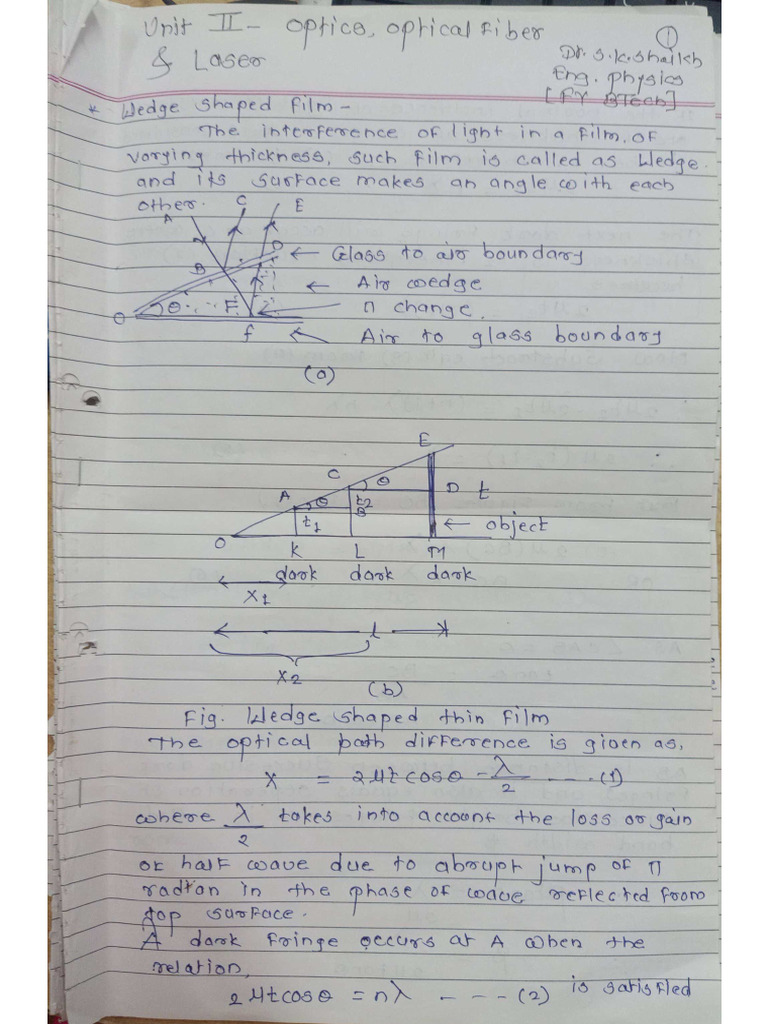 Unit II - optics, optical Fiber
& Laser
①
Dr. S.K. Shaikh
Eng. Physics
[FY BTech]
* Wedge shaped film -
The interference of light in a film, of
varying thickness, such film is called as Wedge.
and its surface makes an angle with each
other.
A C E
B D ← Glass to air boundary
← Air wedge
O θ F ← π change.
f ← Air to glass boundary
(a)
E
C θ D t
A θ t2
B
t1 ← object
O K L M
dark dark dark
x1
l
x2
(b)
Fig. Wedge shaped thin film
The optical path difference is given as,
x = 2μt cosθ - λ/2 --- (1)
where λ/2 takes into account the loss or gain
of half wave due to abrupt jump of π
radian in the phase of wave reflected from
top surface.
A dark fringe occurs at A when the
relation,
2μt cosθ = nλ - --- (2) is satisfied